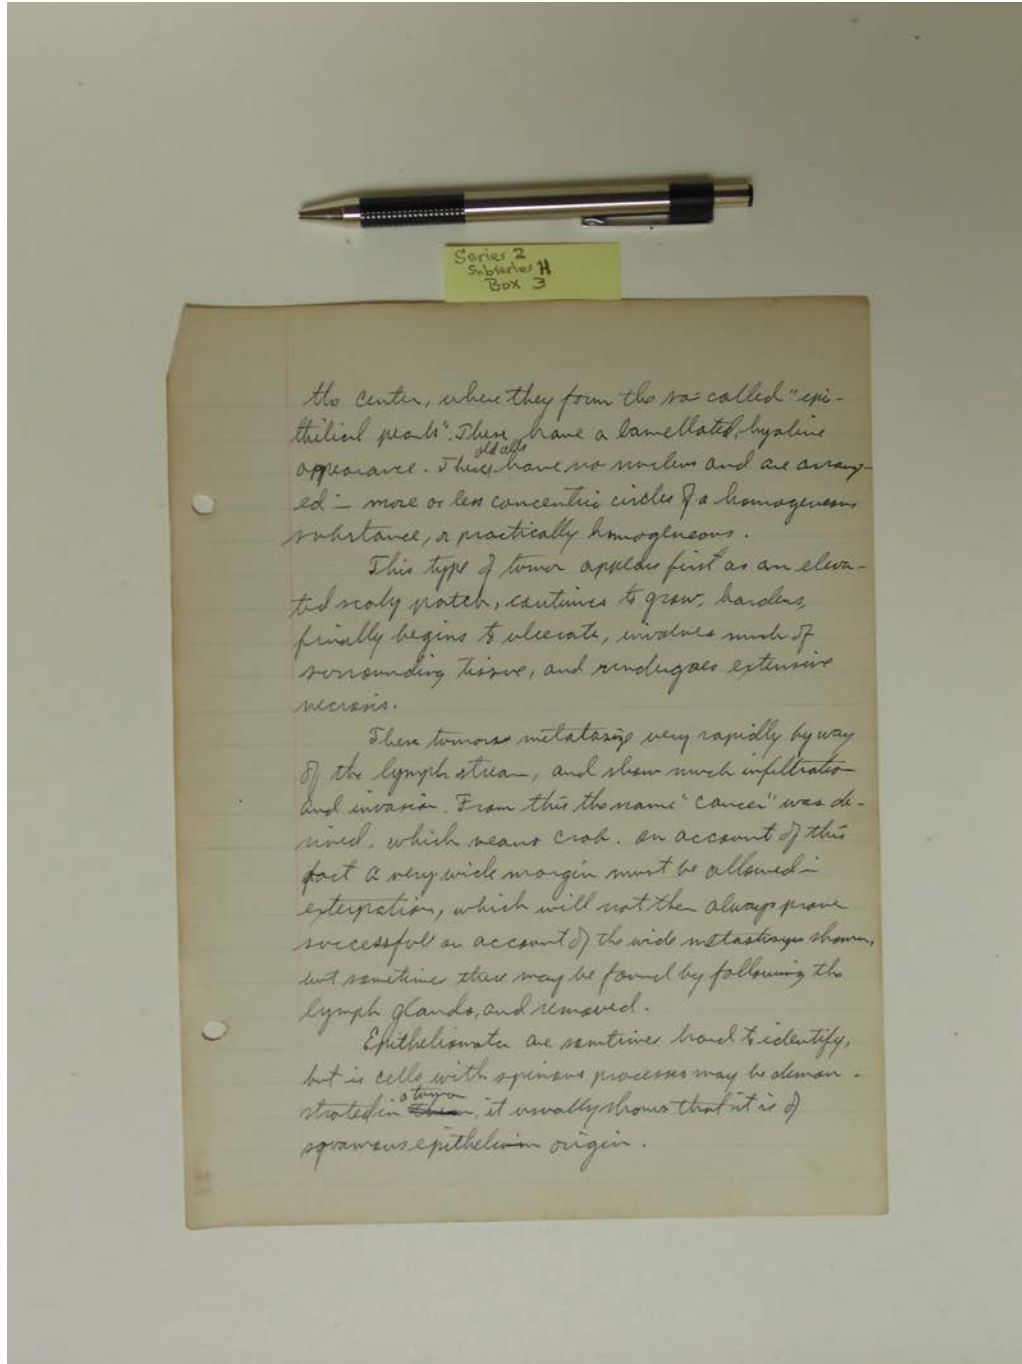 Series 2
Subseries H
Box 3
the center, where they form the so-called "epi-
thilical pearls". These have a lamellated, hyaline
old cells
appearance. These have no nucleus and are arrang-
ed in more or less concentric circles of a homogeneous
substance, or practically homogeneous.
This type of tumor appears first as an eleva-
ted scaly patch, continues to grow, hardens,
finally begins to ulcerate, involves much of
surrounding tissue, and undergoes extensive
necrosis.
These tumors metatasize very rapidly by way
of the lymph stream, and show much infiltration
and invasion. From this the name "cancer" was de-
rived, which means crab. On account of this
fact a very wide margin must be allowed in
exterpation, which will not then always prove
successful on account of the wide metastasyes shown,
but sometimes these may be found by following the
lymph glands, and removed.
Epitheliomata are sometimes hard to identify,
but if cells with spinous processes may be demon-
a tumor
strated in it usually shows that it is of
squamous epithelium origin.